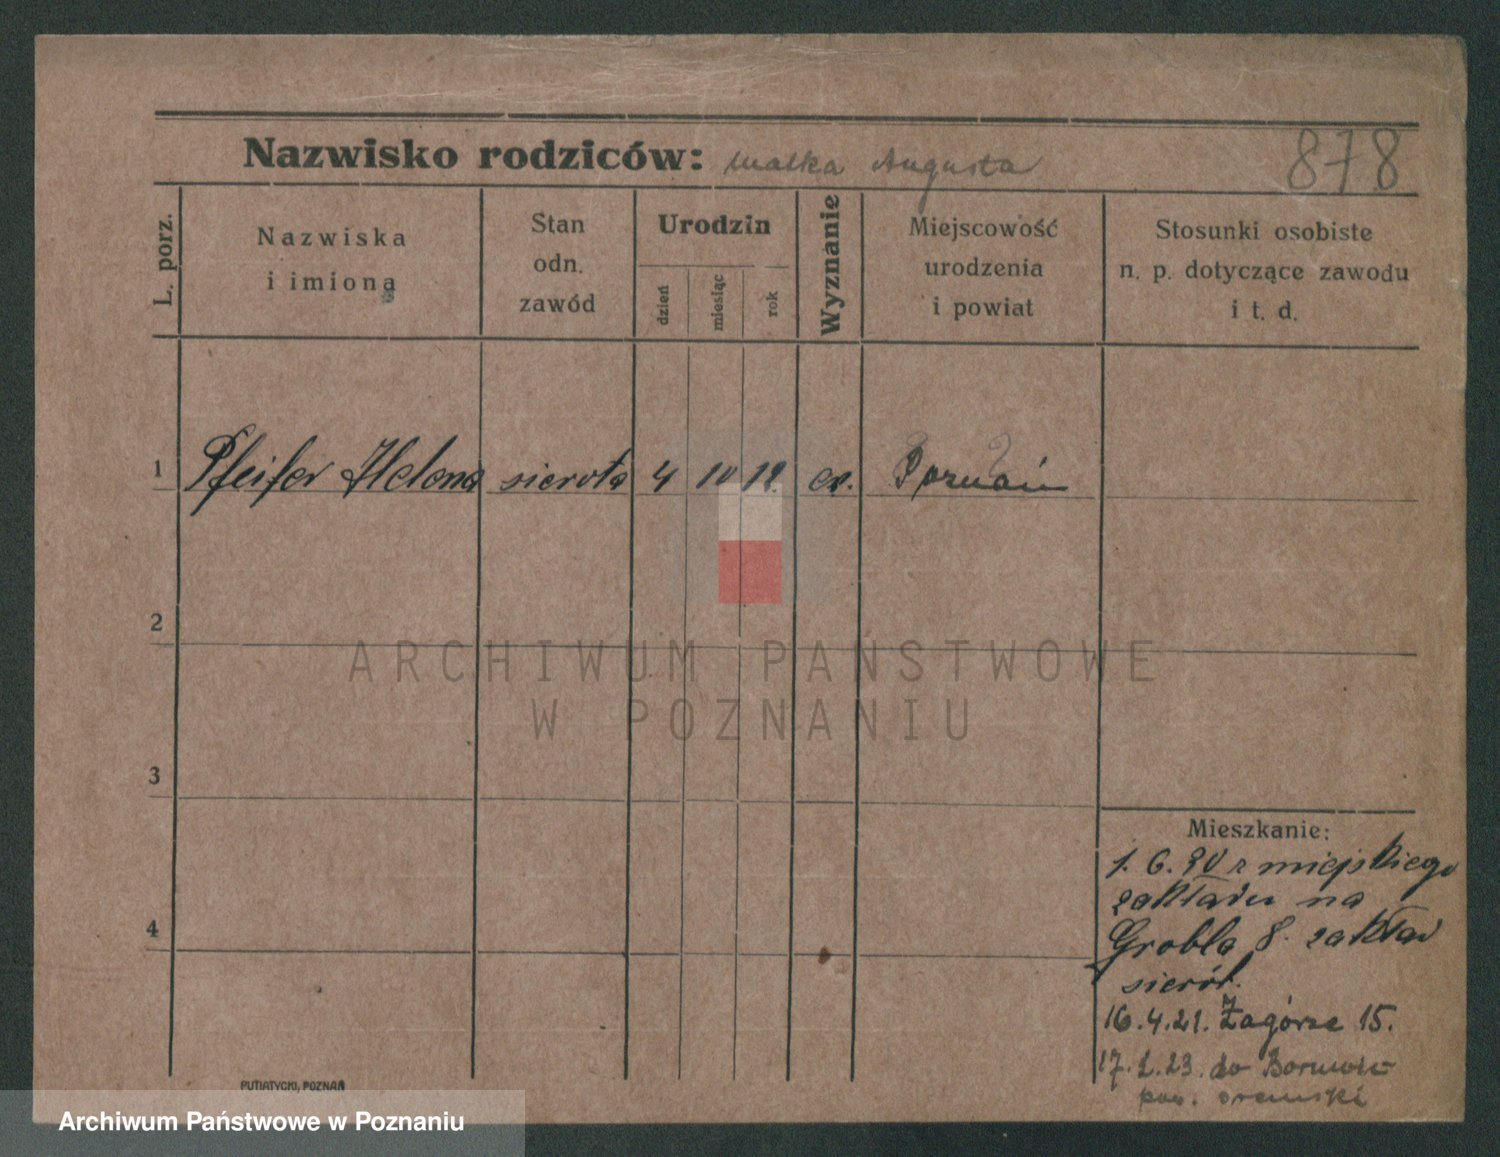 Nazwisko rodziców: matka Augusta
878
L. porz.
Nazwiska
i imiona
Stan
odn.
zawód
Urodzin
dzień
miesiąc
rok
Wyznanie
Miejscowość
urodzenia
i powiat
Stosunki osobiste
n. p. dotyczące zawodu
i t. d.
1 Pfeifer Helena sierota 4 10 12. ew. Poznań
2
ARCHIWUM PAŃSTWOWE
W POZNANIU
3
4
Mieszkanie:
1. 6. 20 z miejskiego
zakładu na
Grobla 8. zakład
sierót.
16.4.21. Zagórze 15.
17. 23. do
pow.
PUTIATYCKI, POZNAŃ
Archiwum Państwowe w Poznaniu